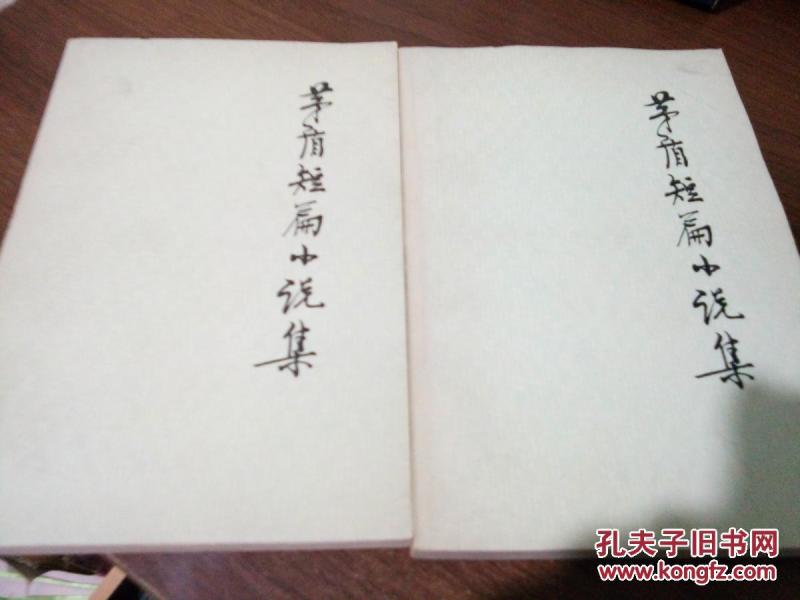 茅盾短篇小说集
茅盾短篇小说集
孔夫子旧书网
www.kongfz.com